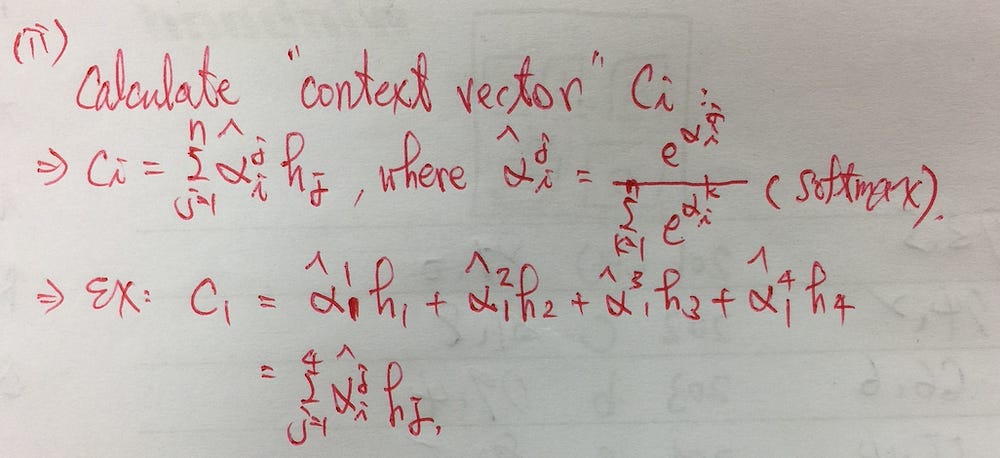 (ii)
Calculate "context vector" Ci :
⇒ Ci = Σ_{j=1}^{n} α̂_i^j h_j , where α̂_i^j = e^{α_i^j} / Σ_{k=1}^{n} e^{α_i^k} (softmax).
⇒ EX: C_1 = α̂_1^1 h_1 + α̂_1^2 h_2 + α̂_1^3 h_3 + α̂_1^4 h_4
= Σ_{j=1}^{4} α̂_i^j h_j.